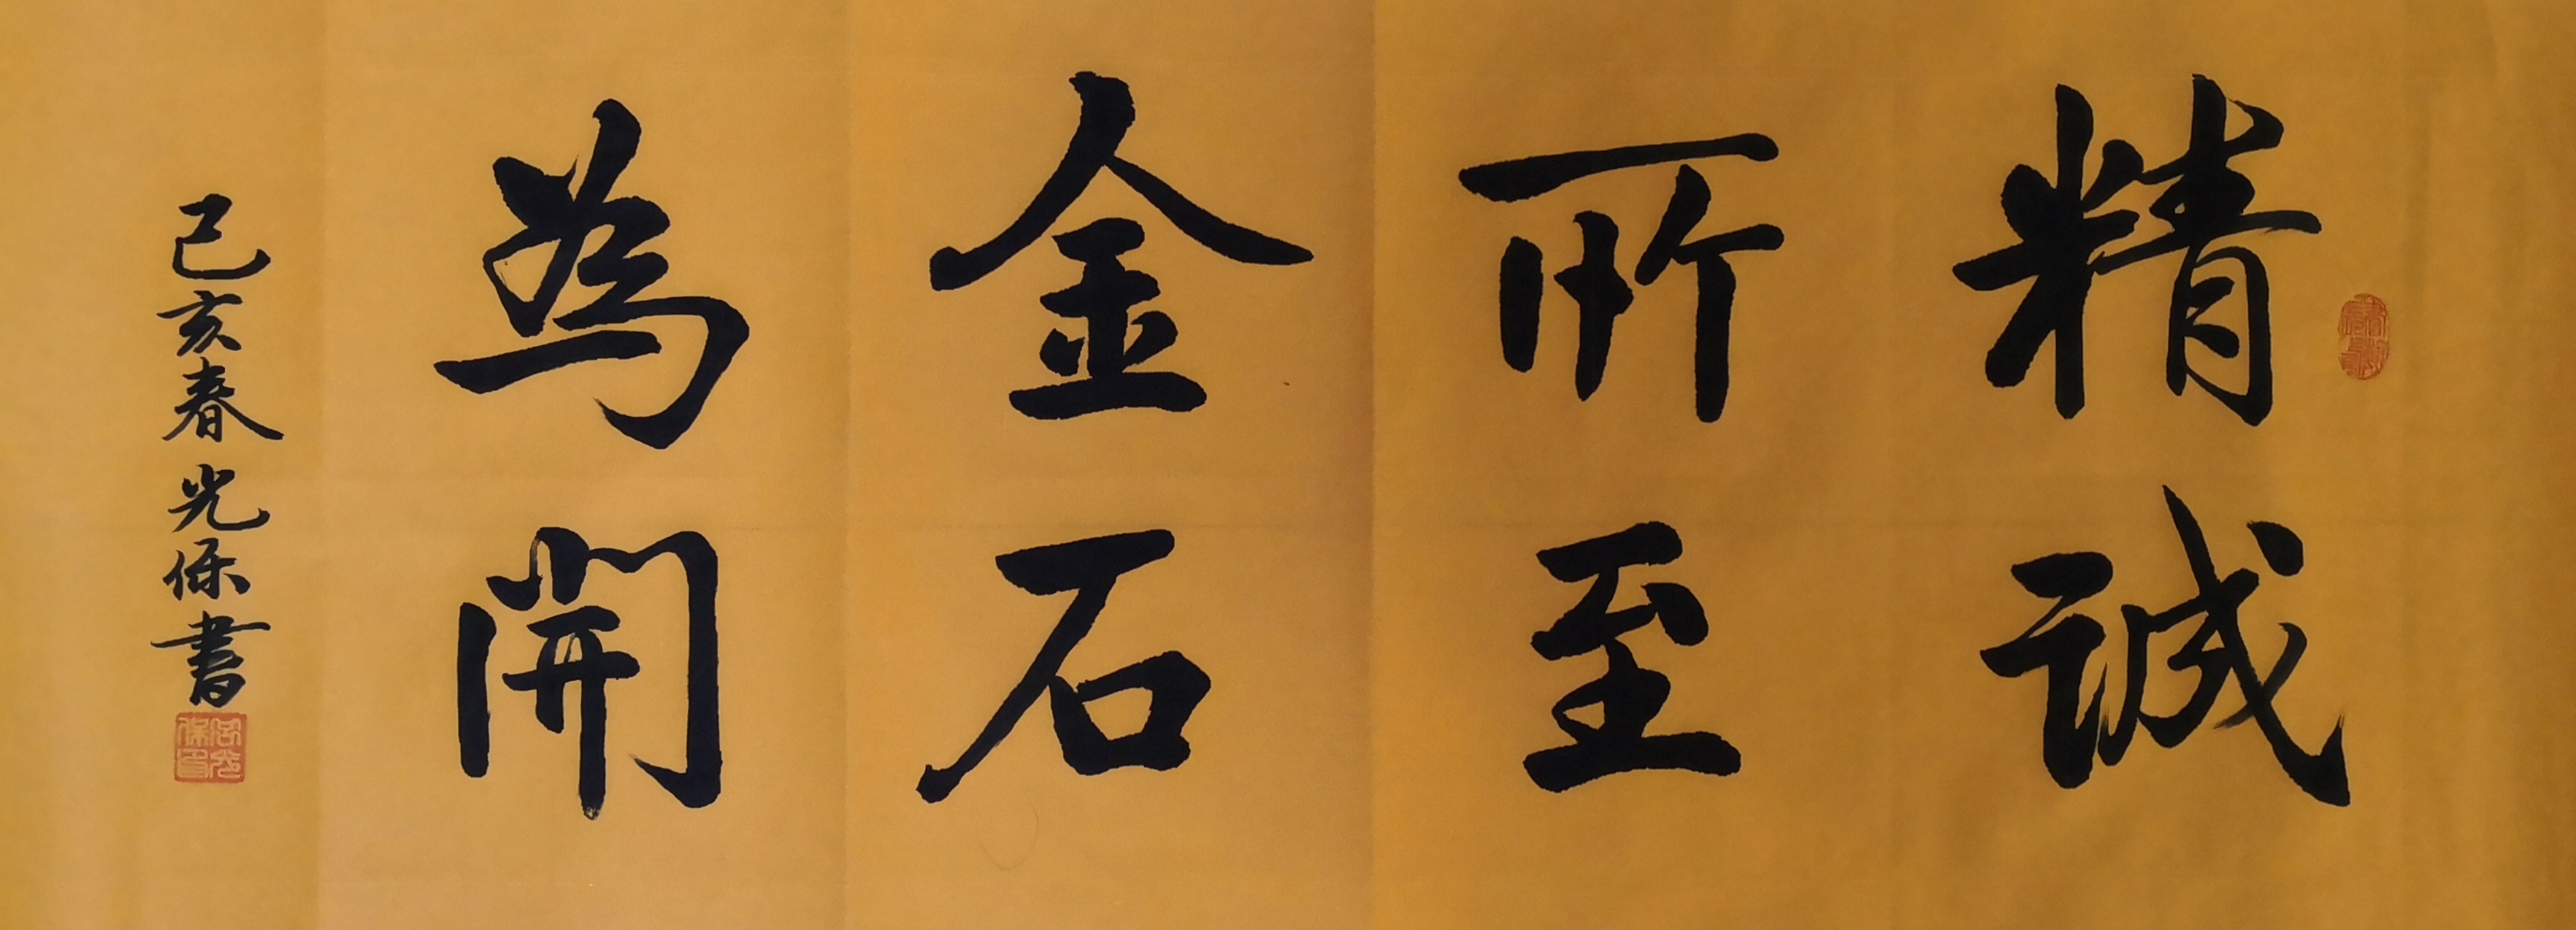 精誠
所至
金石
為開
己亥春光保書